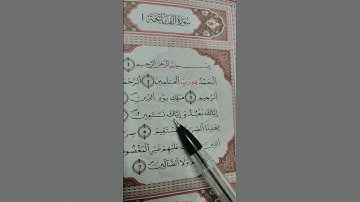 سورة الفاتحة ١
بسم الله الرحمن الرحيم ١
الحمد لله رب العلمين ٢ الرحمن
الرحيم ٣ ملك يوم الدين ٤
إياك نعبد وإياك نستعين ٥
اهدنا المستقيم ٦
الذين عليهم غير المغضوب
ولا الضالين ٧